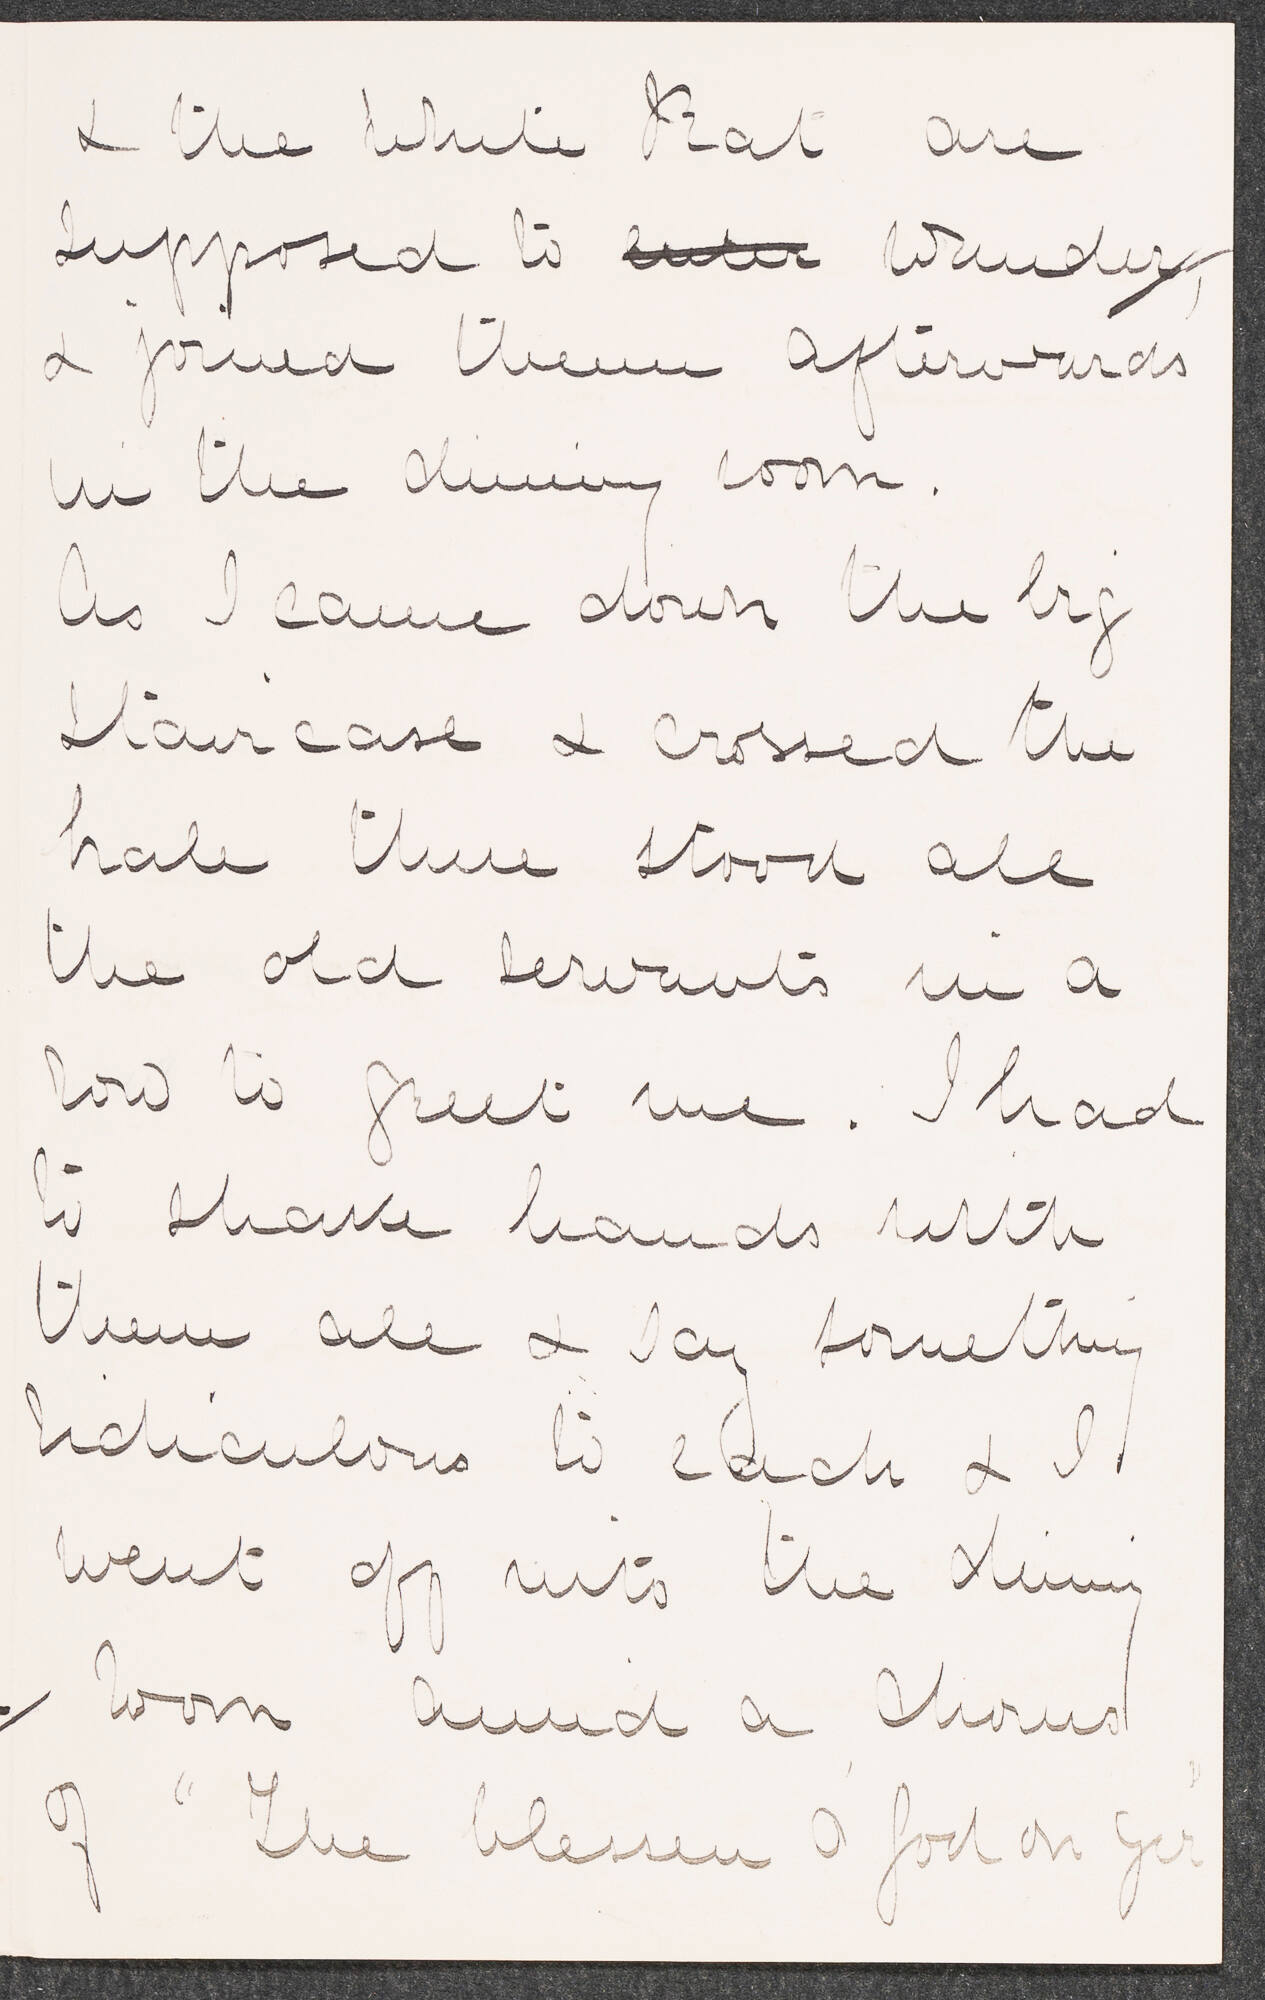 & the White Rat are
supposed to ~~enter~~ wander,
& joined them afterwards
in the dining room.
As I came down the big
staircase & crossed the
hall there stood all
the old servants in a
row to greet me. I had
to shake hands with
them all & say something
ridiculous to each & I
went off into the dining
room amid a chorus
of "The blessen o' God on yer"